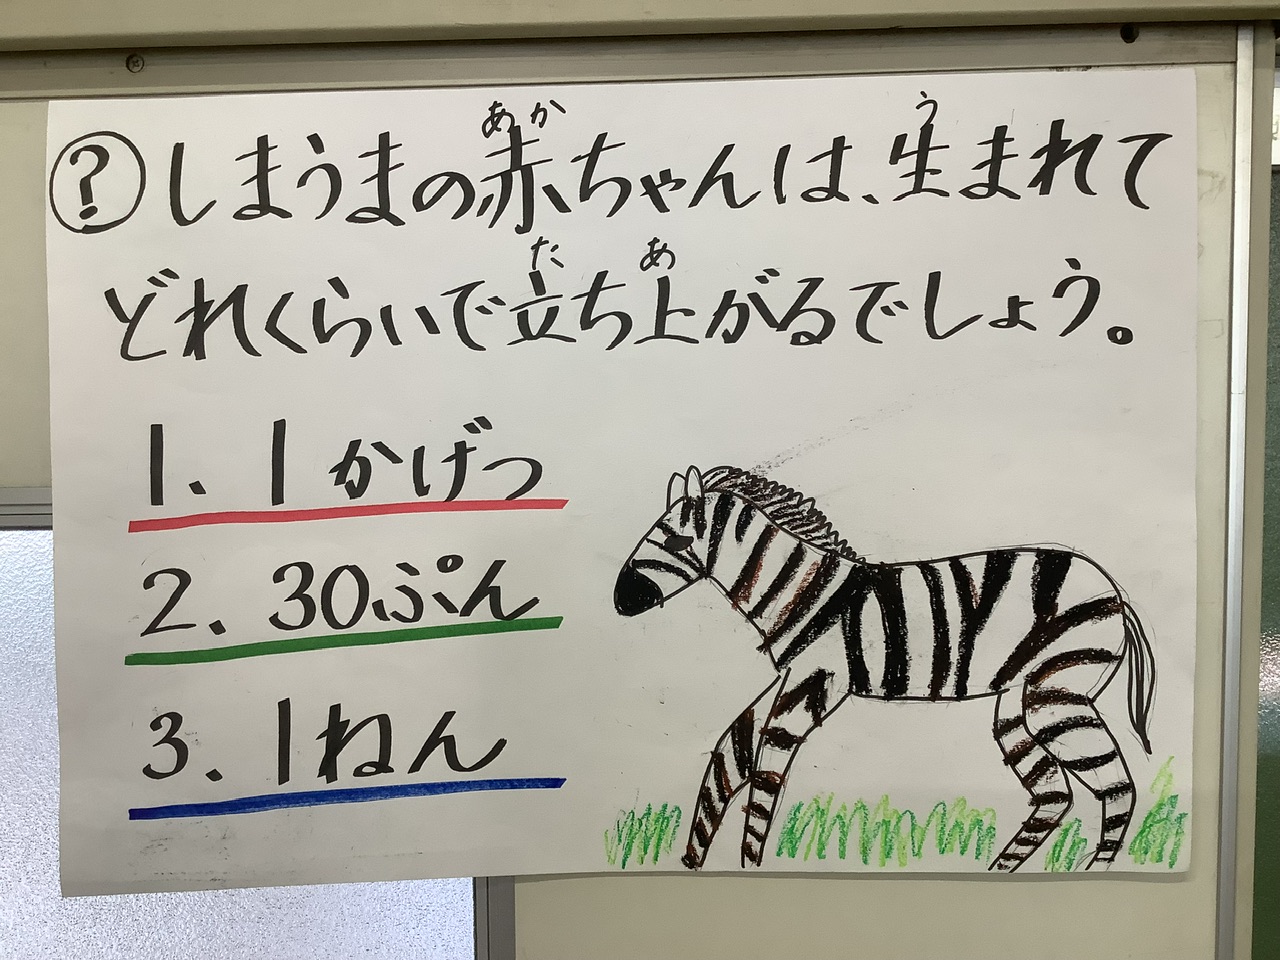 ? しまうまの赤ちゃんは、生まれて
どれくらいで立ち上がるでしょう。
1. 1かげつ
2. 30ぷん
3. 1ねん